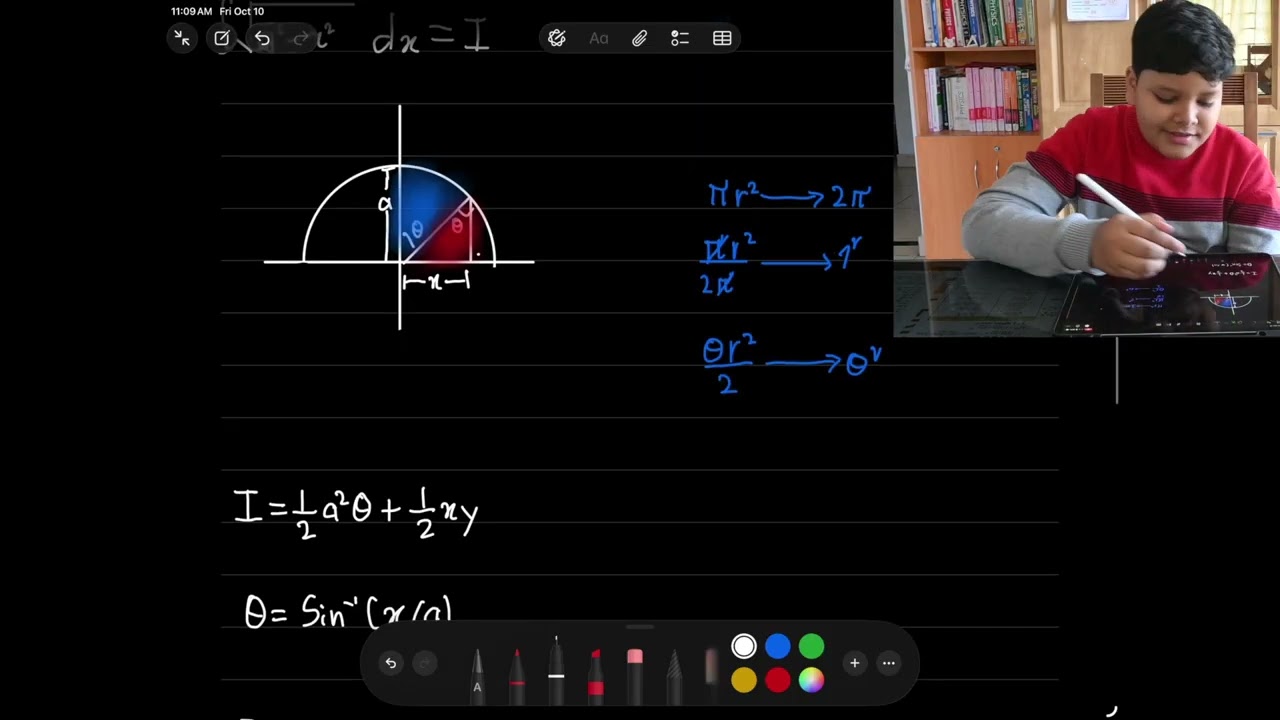 11:09 AM Fri Oct 10
dx = I
Aa
πr² → 2π
πr²/2π → 1ʳ
θr²/2 → θʳ
a
θ
θ
x
I = 1/2 a²θ + 1/2 xy
θ = Sin⁻¹(x/a)
A